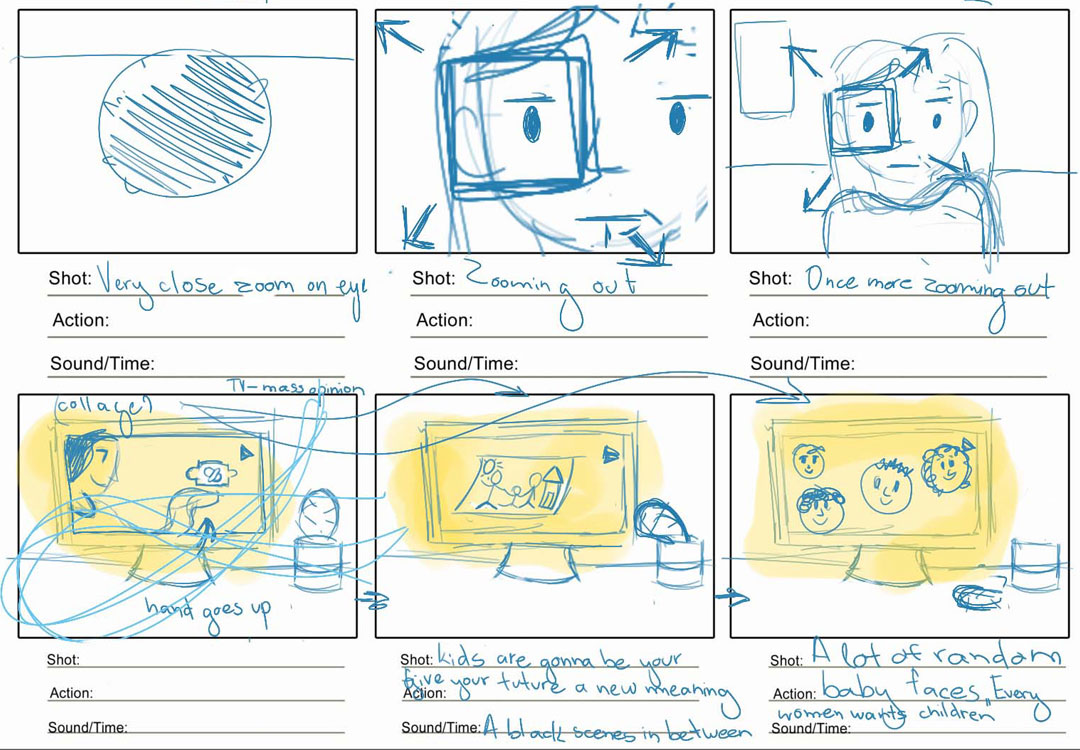 Shot: Very close zoom on eye
Action:
Sound/Time:
Shot: Zooming out
Action:
Sound/Time:
Shot: Once more zooming out
Action:
Sound/Time:
TV-mass opinion
(collage?
hand goes up
Shot:
Action:
Sound/Time:
Shot: kids are gonna be your
give your future a new meaning
Action:
Sound/Time: A black scenes in between
Shot: A lot of random
Action: baby faces "Every
women wants children"
Sound/Time: